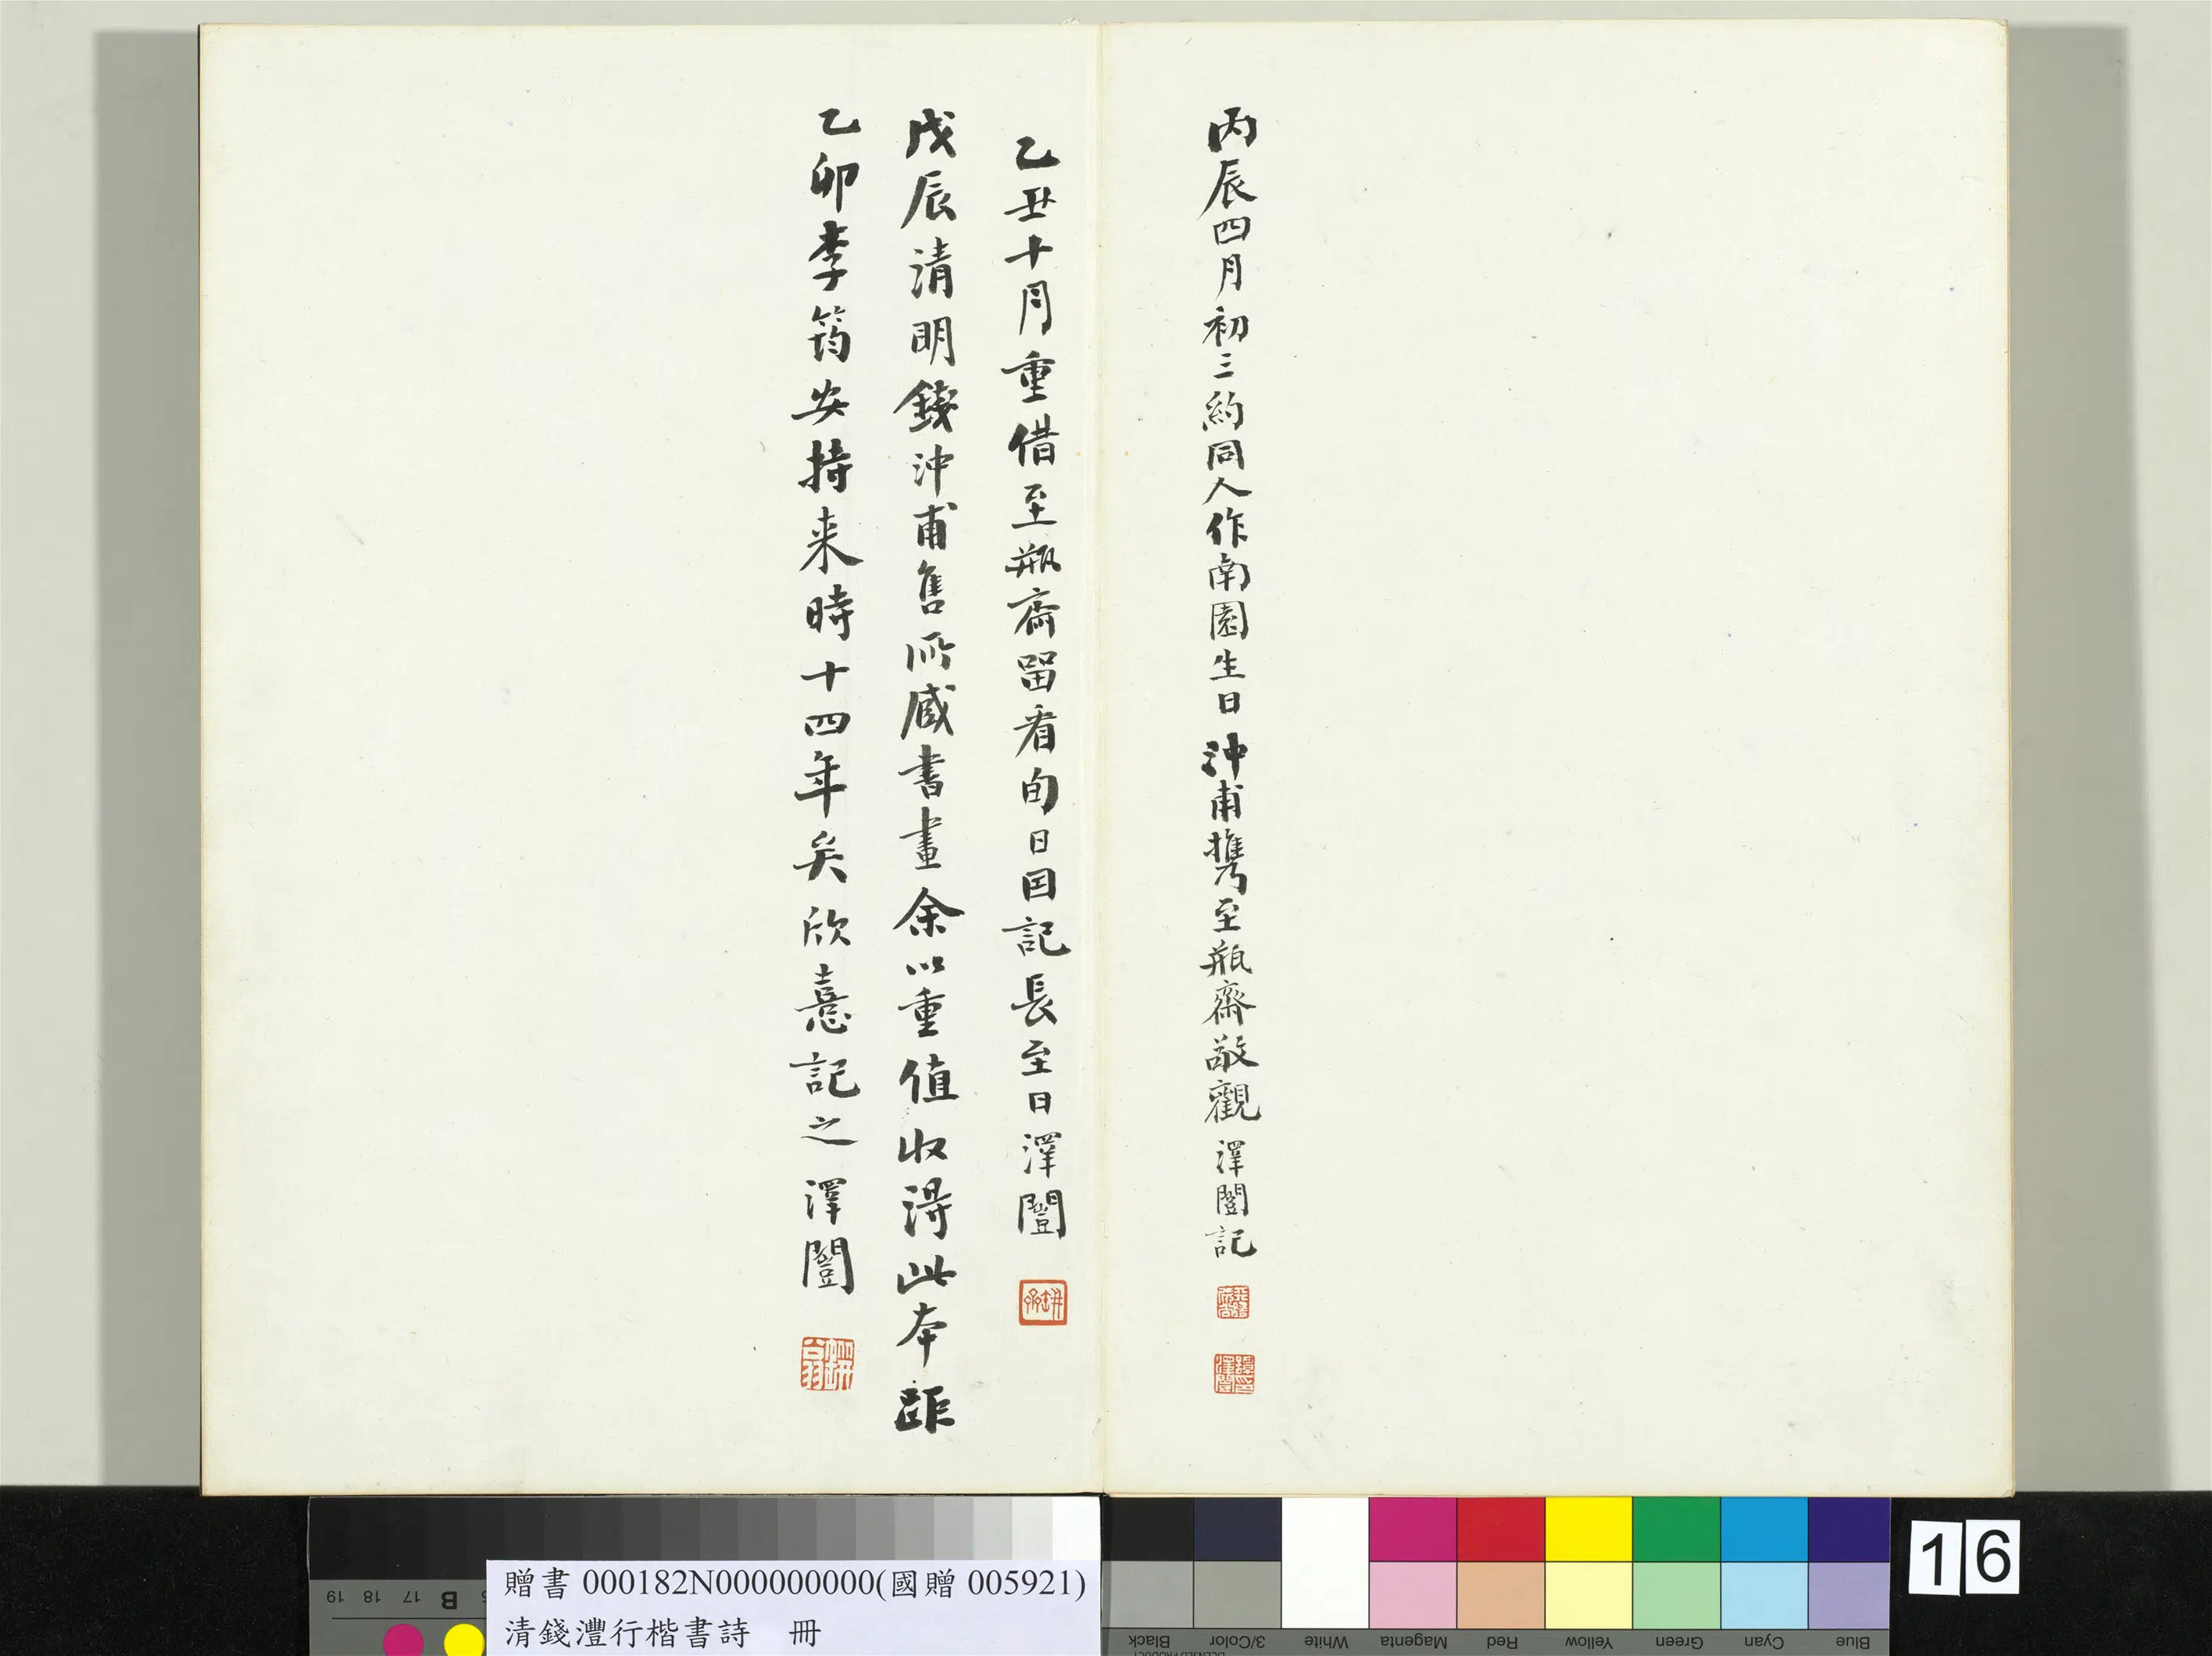 丙辰四月初三約同人作南園生日沖甫攜至瓶齋敬觀澤闓記
乙丑十月重借至瓶齋留看旬日因記長至日澤闓
戊辰清明錢沖甫售所藏書畫余以重值收得此本距
乙卯李筠安持来時十四年矣欣憙記之澤闓
贈書000182N000000000(國贈005921)
清錢灃行楷書詩 冊
16
19 18 17 B
Black 3/Color White Magenta Red Yellow Green Cyan Blue